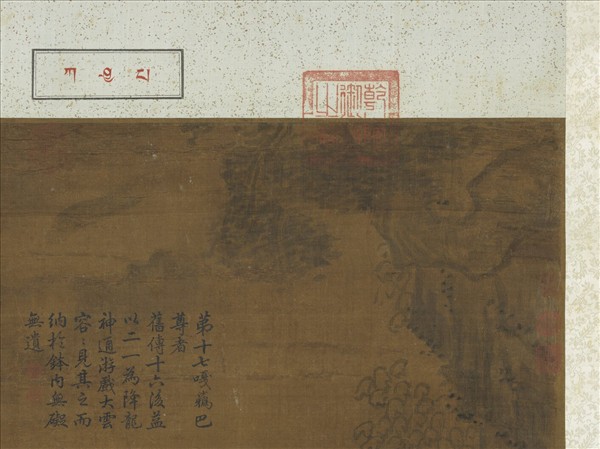 乾
御
之
第十七嘎巴
尊者
舊傳十六後益
以二一為降龍
神通游戲大雲
容〻見其之而
納於鉢內無礙
無遺